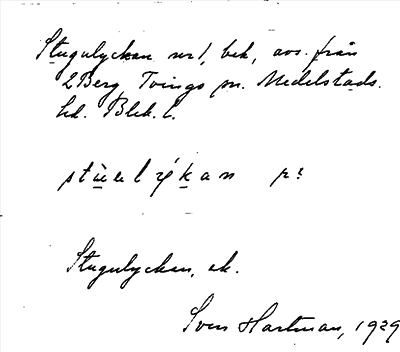 Stugulyckan nr 1, bek, avs. från
2 Berg, Tvings sn. Medelstads.
hd. Blek. l.
Stugulyckan, ek.
Sven Hartman, 1929